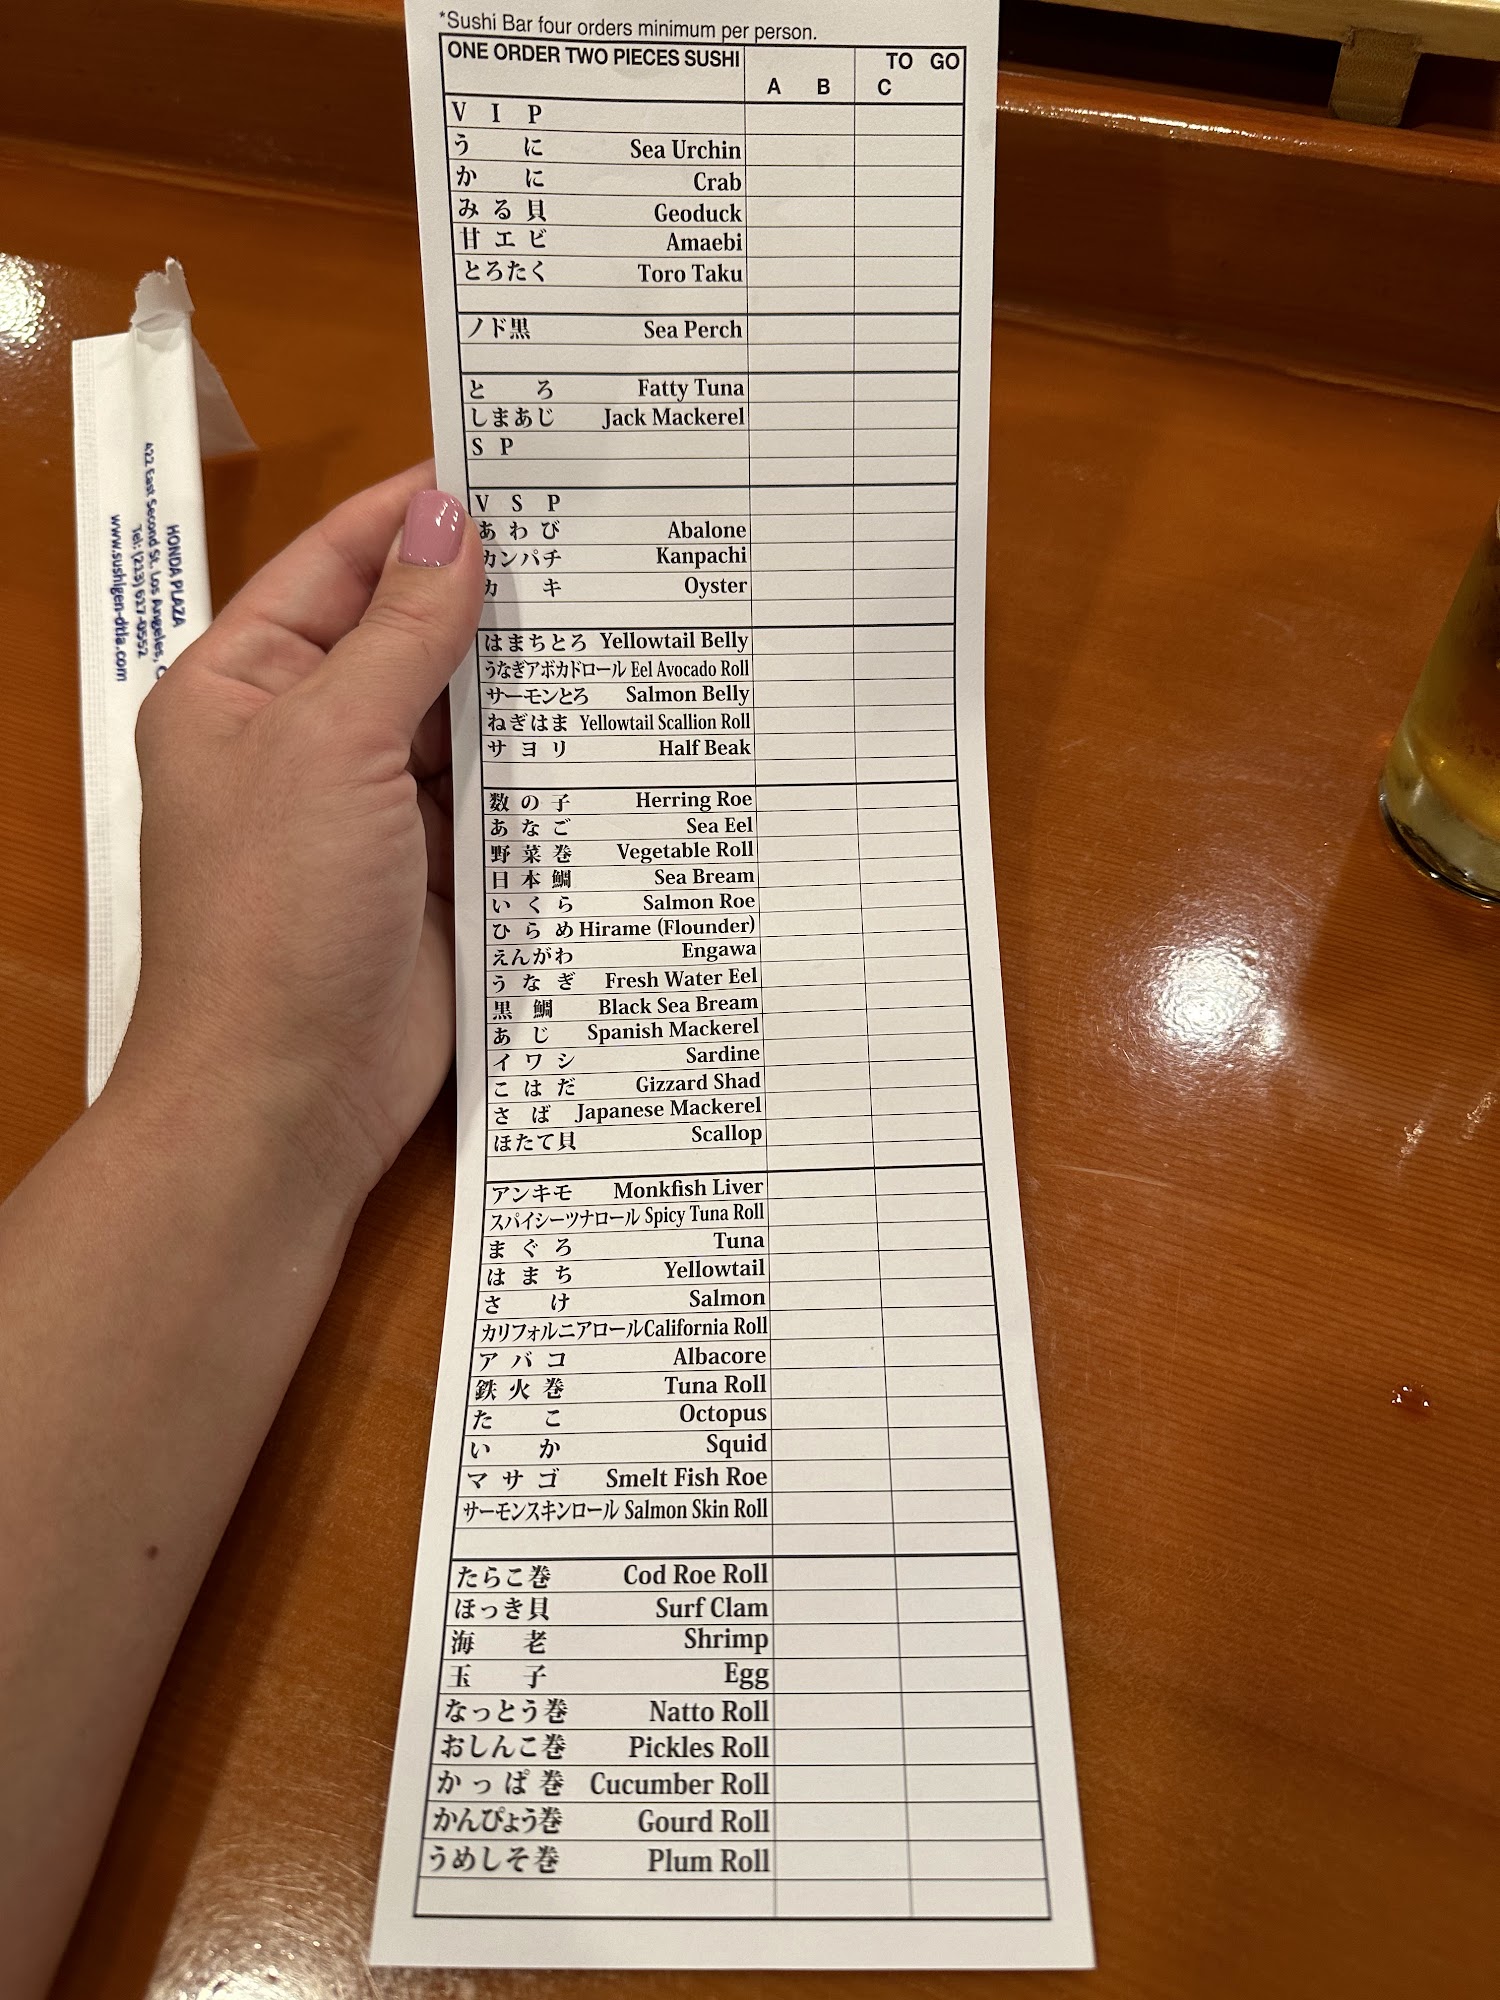 *Sushi Bar four orders minimum per person.
ONE ORDER TWO PIECES SUSHI A B TO GO C
V I P
うに Sea Urchin
かに Crab
みる貝 Geoduck
甘エビ Amaebi
とろたく Toro Taku
ノド黒 Sea Perch
とろ Fatty Tuna
しまあじ Jack Mackerel
S P
V S P
あわび Abalone
カンパチ Kanpachi
カキ Oyster
はまちとろ Yellowtail Belly
うなぎアボカドロール Eel Avocado Roll
サーモンとろ Salmon Belly
ねぎはま Yellowtail Scallion Roll
サヨリ Half Beak
数の子 Herring Roe
あなご Sea Eel
野菜巻 Vegetable Roll
日本鯛 Sea Bream
いくら Salmon Roe
ひらめ Hirame (Flounder)
えんがわ Engawa
うなぎ Fresh Water Eel
黒鯛 Black Sea Bream
あじ Spanish Mackerel
イワシ Sardine
こはだ Gizzard Shad
さば Japanese Mackerel
ほたて貝 Scallop
アンキモ Monkfish Liver
スパイシーツナロール Spicy Tuna Roll
まぐろ Tuna
はまち Yellowtail
さけ Salmon
カリフォルニアロール California Roll
アバコ Albacore
鉄火巻 Tuna Roll
たこ Octopus
いか Squid
マサゴ Smelt Fish Roe
サーモンスキンロール Salmon Skin Roll
たらこ巻 Cod Roe Roll
ほっき貝 Surf Clam
海老 Shrimp
玉子 Egg
なっとう巻 Natto Roll
おしんこ巻 Pickles Roll
かっぱ巻 Cucumber Roll
かんぴょう巻 Gourd Roll
うめしそ巻 Plum Roll
HONDA PLAZA
422 East Second St. Los Angeles,
Tel: (213) 617-0552
www.sushigen-dtla.com